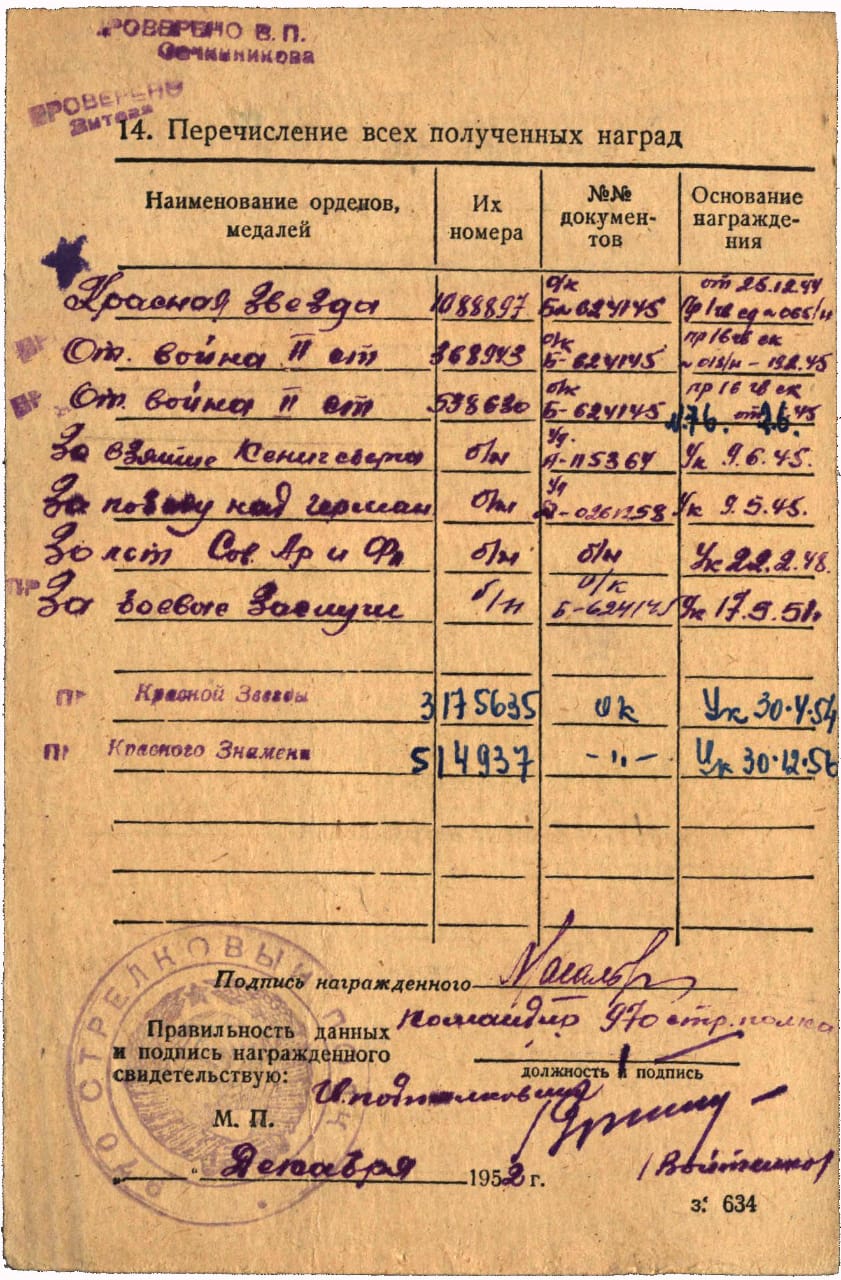 ПРОВЕРЕНО В. П.
Овчинникова
ПРОВЕРЕНО
14. Перечисление всех полученных наград
Наименование орденов, медалей
Их номера
№№ документов
Основание награждения
Красная Звезда 1088897 о/к Б-624145 от 26.12.44
От. война II ст 368943 о/к Б-624145 пр 16 гв ск 19.2.45
От. война II ст 598630 о/к Б-624145 пр 16 гв ск №76. от 45
За взятие Кенигсберга б/н Уд. А-115364 Ук 9.6.45.
За победу над герман б/н Уд 0261258 Ук 9.5.45.
За лет Сов. Ар и Фл б/н б/н Ук 22.2.48.
ПР За боевые заслуги б/н о/к Б-624145 Ук 17.5.51
ПР Красной Звезды 3175635 ок Ук 30.4.54
ПР Красного Знамени 514937 -"- Ук 30.12.56
Подпись награжденного
Командир 970 стр. полка
Правильность данных
и подпись награжденного
свидетельствую:
должность и подпись
подполковник
М. П.
„ “ Декабря 1952 г.
з. 634
СТРЕЛКОВЫЙ